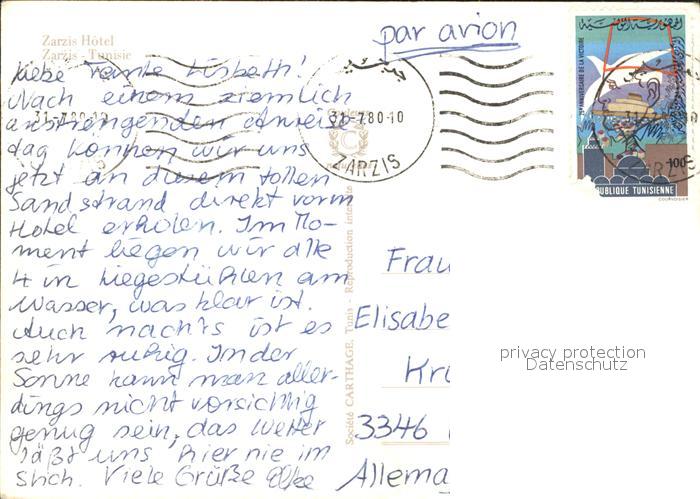 par avion
Zarzis Hôtel
Zarzis - Tunisie
Liebe Tante Lisbeth!
Nach einem ziemlich
anstrengenden Anreise-
tag können wir uns
jetzt an diesem tollen
Sandstrand direkt vorm
Hotel erholen. Im Mo-
ment liegen wir alle
4 in Liegestühlen am
Wasser, was klar ist.
Auch nachts ist es
sehr ruhig. In der
Sonne kann man aller-
dings nicht vorsichtig
genug sein, das Wetter
läßt uns hier nie im
Stich. Viele Grüße Elke
31-7.80-10
ZARZIS
Société CARTHAGE, Tunis - Reproduction interdite
25e ANNIVERSAIRE DE LA VICTOIRE
الجمهورية التونسية
100
RÉPUBLIQUE TUNISIENNE
COURVOISIER
Frau
Elisabe
Kr
3346
Allema
privacy protection
Datenschutz